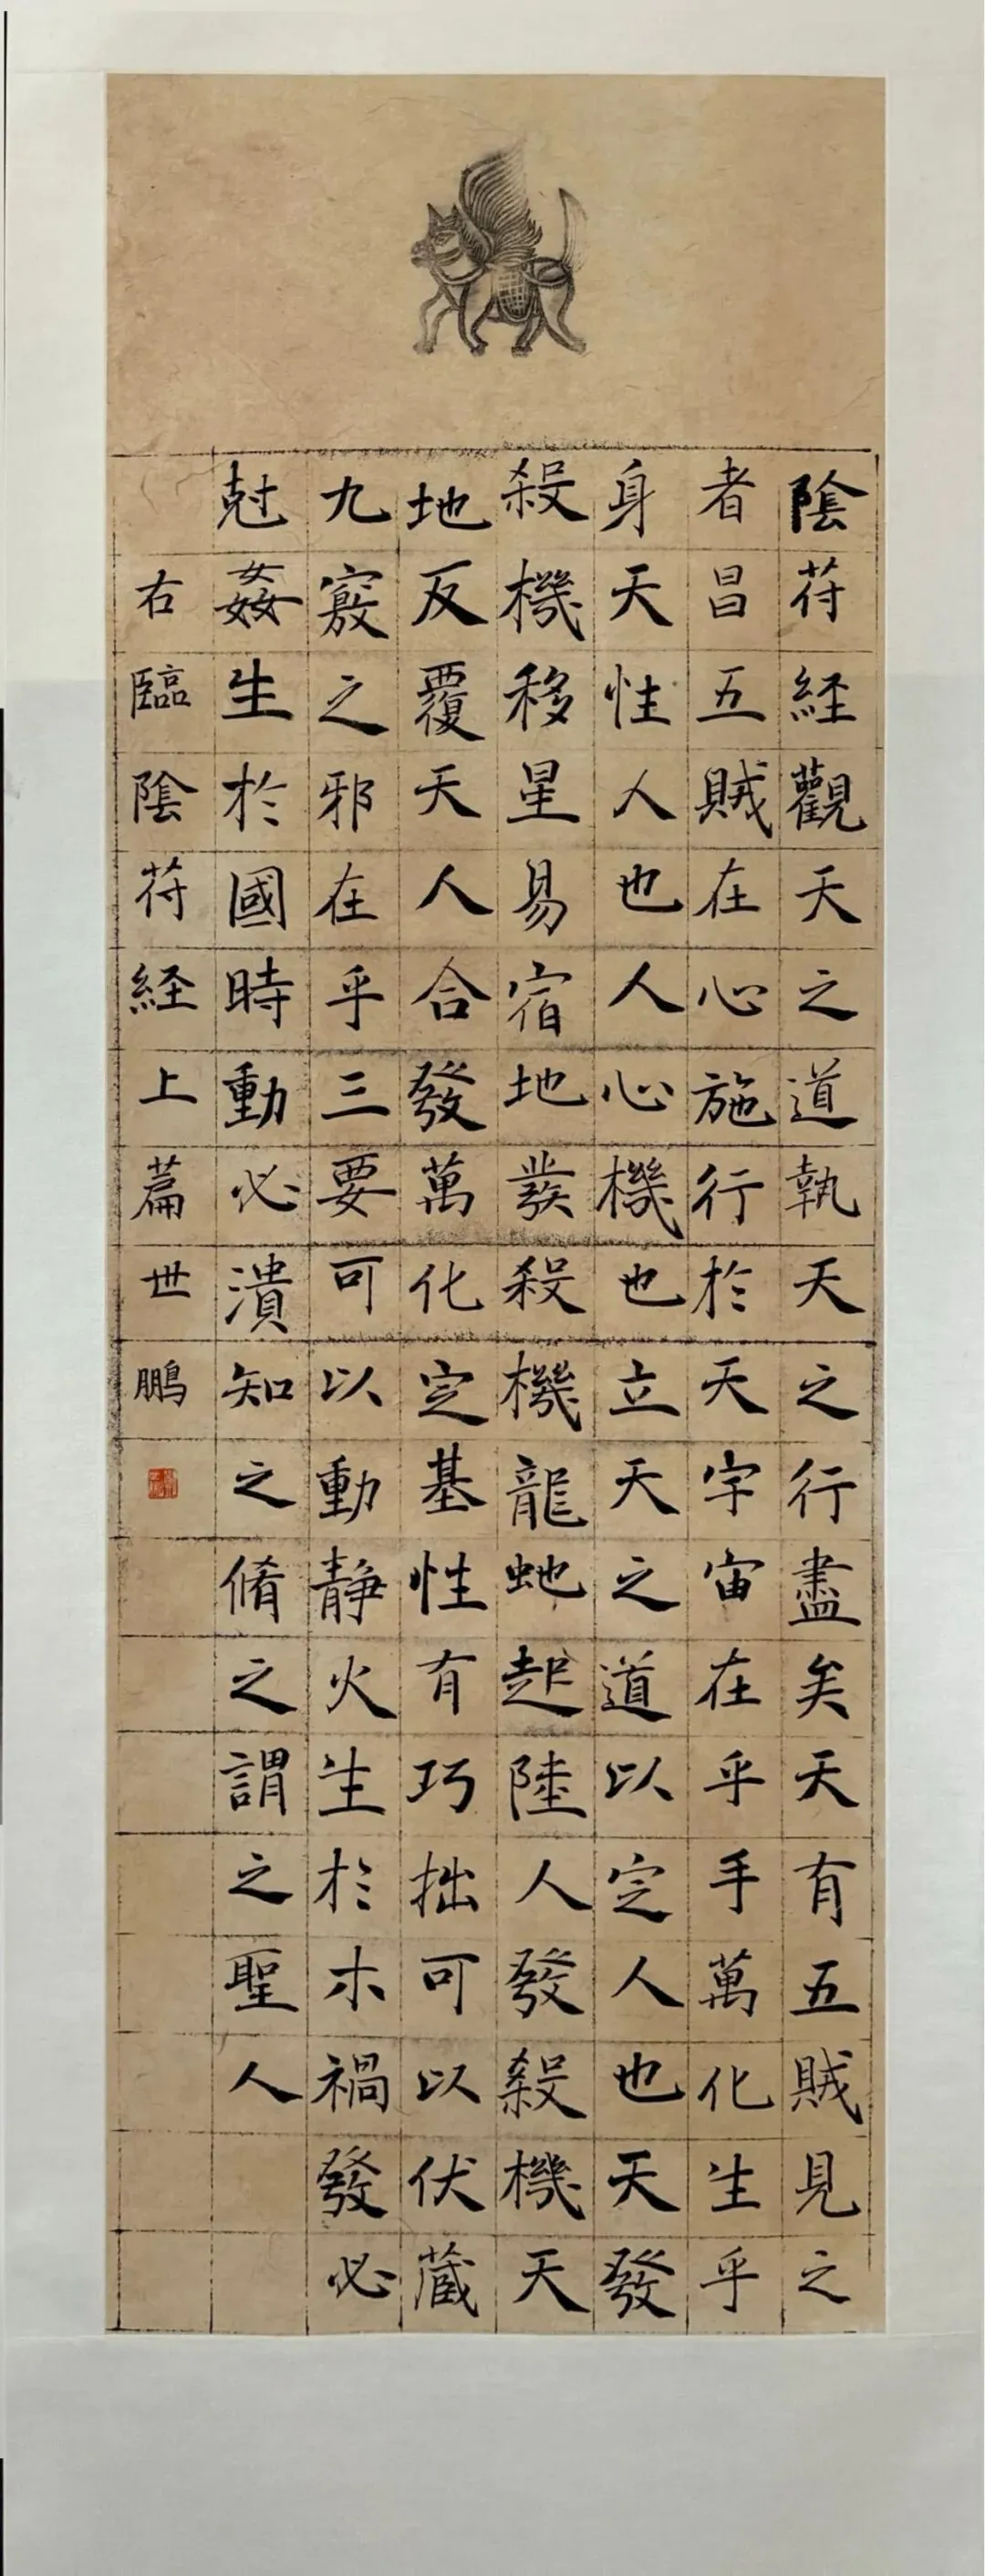 陰符経觀天之道執天之行盡矣天有五賊見之
者昌五賊在心施行於天宇宙在乎手萬化生乎
身天性人也人心機也立天之道以定人也天發
殺機移星易宿地發殺機龍虵起陸人發殺機天
地反覆天人合發萬化定基性有巧拙可以伏蔵
九竅之邪在乎三要可以動静火生於木禍發必
尅姦生於國時動必潰知之脩之謂之聖人
右臨陰符経上篇世鵬